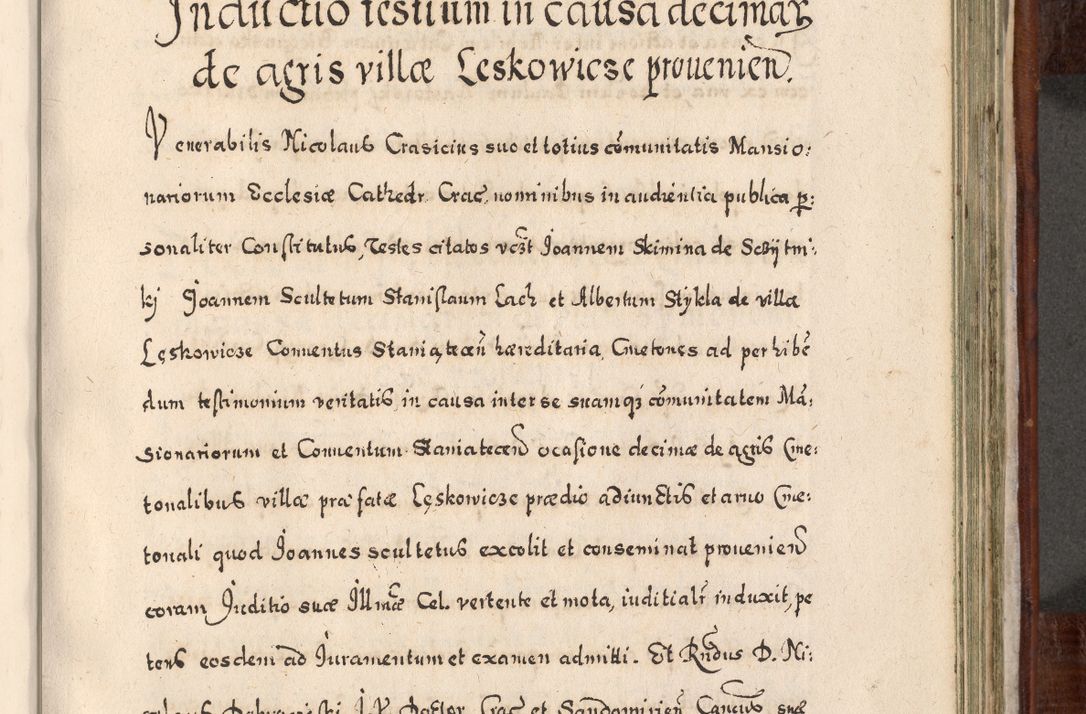 Inductio testium in causa decimaꝝ
de agris villæ Leskowicze prouenień.
Venerabilis Nicolaus Crasicius suo et totius cõmunitatis Mansio:
nariorum Ecclesiæ Cathedr. Crac̃. nominibus in audientia publica ꝑ:
sonaliter Constitutus, Testes citatos vcz̃t Joannem Skimina de
kj Joannem Scultetum Stanislaum Lach et Albertum Stykla de villa
Lęskowicze Conuentus Staniąteceñ hæreditaria, Cmetones ad perhibẽ
dum testimonium veritatis, in causa inter se suamqꝫ cõmunitatem Mã:
sionariorum et Conuentum Staniatecen̄ ocasione decimæ de agris Cme:
tonalibus villæ præfatæ Lęskowicze prædio adiunctis et aruo Cme:
tonali quod Joannes scultetus excolit et conseminat prouenien̄
coram Juditio suæ Illmæ Cel. vertente et mota, iuditialr̃ induxit, pe
tens eosdem ad Juramentum et examen admitti. Et Rñdus D. Ni:
Doctor Crac̃ et Sandomirieñ Cancus suæ